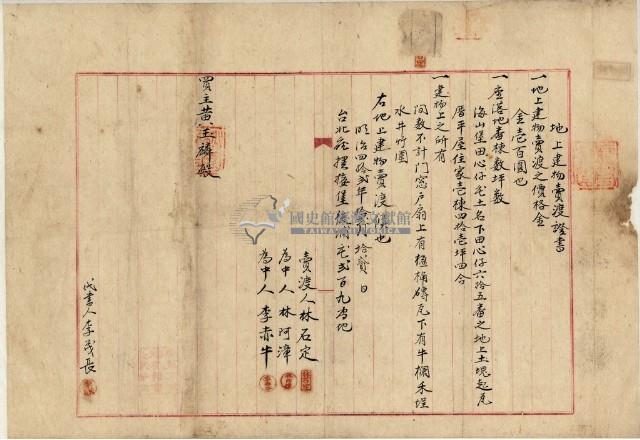 地上建物賣渡證書
一地上建物賣渡之價格金
金壹百圓也
一座落地番棟數坪數
海山堡田心仔庄土名下田心仔六拾五番之地上土塊起瓦
厝平屋住家壹棟四拾壹坪四合
一建物上之所有
間數不計門窓戶扇上有楹桷磚瓦下有牛欄禾埕
水牛竹圍
右地上建物賣渡也
明治四拾貳年 月拾貳日
台北廳擺接堡 庄貳百九番地
賣渡人林石定
為中人林阿漳
為中人李赤牛
買主黃玉麟殿
代書人李茂長
國史館臺灣文獻館
TAIWAN HISTORICA